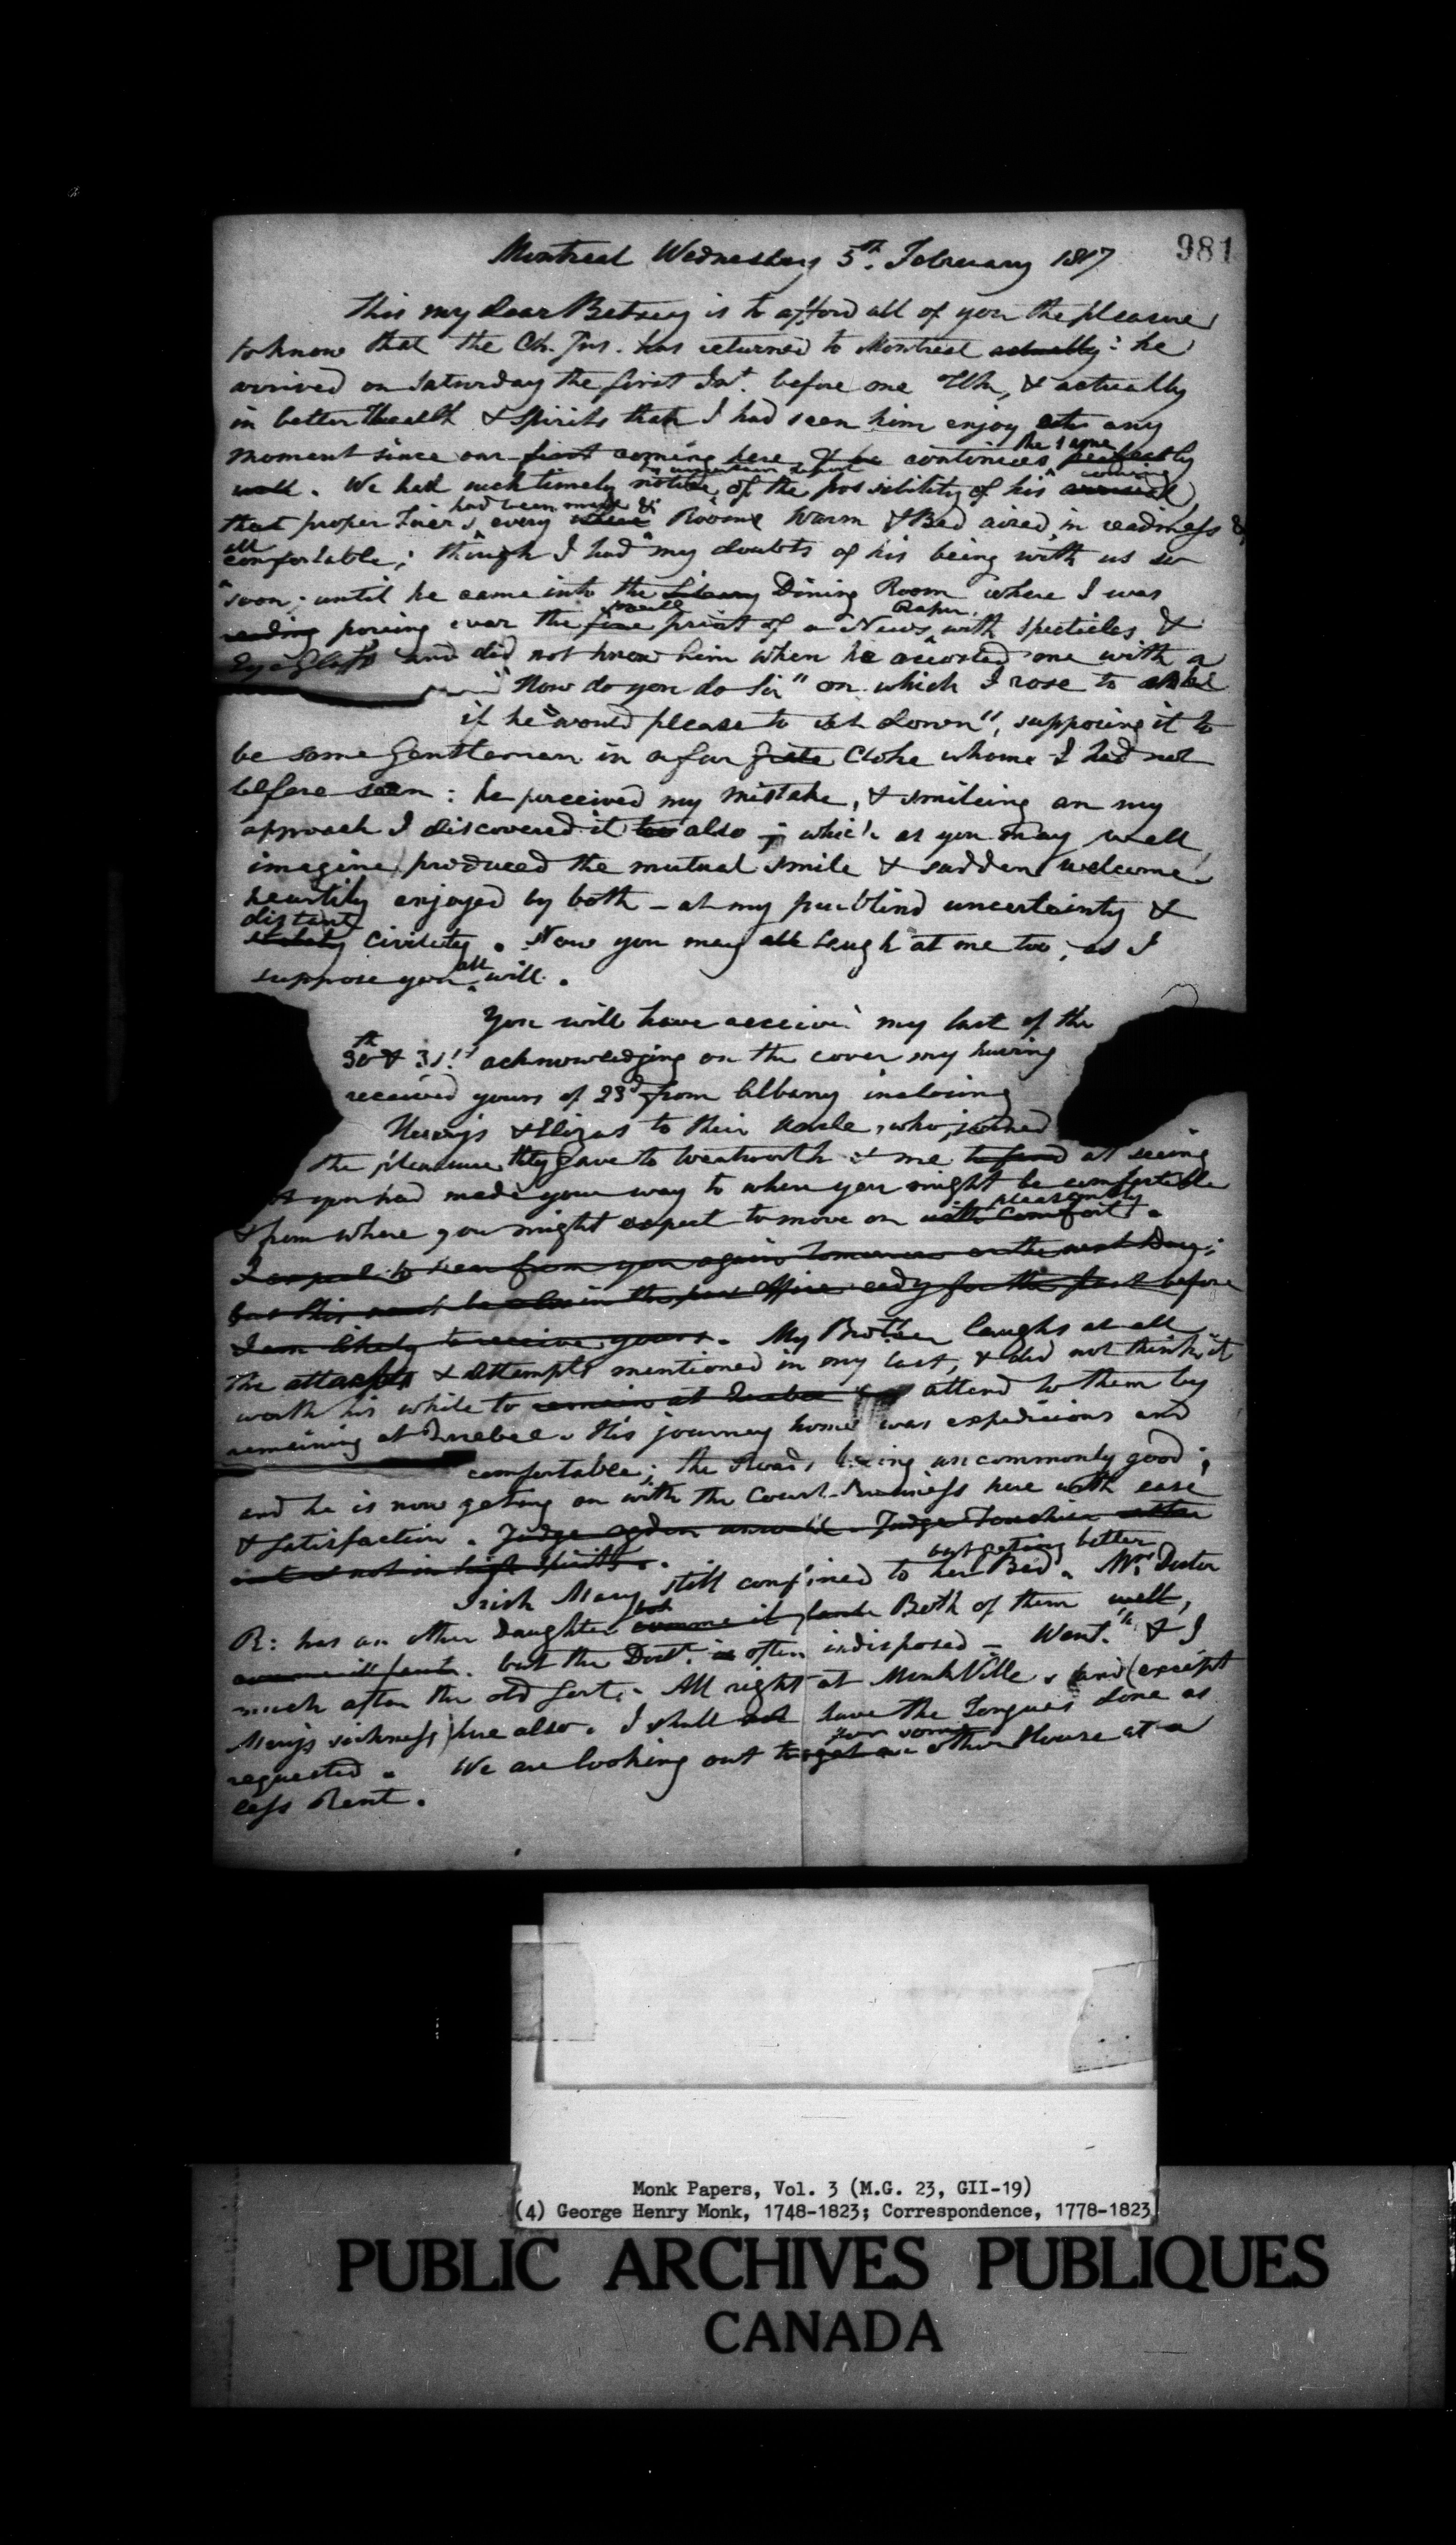 981
Montreal Wednesday 5th. February 1817
This my dear Betsey is to afford all of you the pleasure
to know that the Ch. Jus. has returned to Montreal actually: he
arrived on Saturday the first Inst. before one & actually
in better Health & spirits than I had seen him enjoy at any
moment since our first coming here & he continues the same perfectly
well. We had such timely notice of the possibility of his coming arrival
that proper Fires had been made & every Rooms Warm & Bed aired in readiness &
all comfortable; though I had my doubts of his being with us so
soon; until he came into the Library Dining Room where I was
reading poring over the fine small print of a News Paper, with specticles &
Eye Glass and did not know him when he accosted me with a
"How do you do Sir" on which I rose to ask
if he "would please to set down", supposing it to
be some Gentleman in a fur Cloke whome I had not
before seen: he perceived my mistake, & smileing on my
approach I discovered it too also; which as you may well
imagine produced the mutual smile & sudden welcome
heartily enjoyed by both - at my purblind uncertainty &
distant civility. Now you may all laugh at me too, as I
suppose you all will.
You will have received my last of the
30th & 31st acknowledging on the cover my having
received yours of 23d from Albany inclosing
& Elizas to their Uncle, who joined
the pleasure they gave to Wentworth & me to find at seeing
you had made your way to where you might be comfortable
& from where you might expect to move on with comfort pleasantly.
I expect to hear from you again tomorrow or the next Day;
but this must be in the post Office early for the post before
I am likely to receive yours. My Brother laughs at all
the attacks & attempts mentioned in my last, & did not think it
worth his while to remain at Quebec attend to them by
remaining at Quebec. His journey home was expedicious and
comfortable; the Roads being uncommonly good;
and he is now geting on with the Court Business here with ease
& satisfaction. Judge Ogden Judge
is not in high spirits.
Irish Mary still confined to her Bed but geting better. Mrs. Doctor
R: has an other Daughter Both of them well,
but the Doct. is often indisposed - Went.th & I
much after the old sort. All right at MonkVille, and (except
Marys sickness) here also. I shall have the Tongues done as
requested. We are looking out to get an for some other House at a
less Rent.
Monk Papers, Vol. 3 (M.G. 23, GII-19)
(4) George Henry Monk, 1748-1823; Correspondence, 1778-1823
PUBLIC ARCHIVES PUBLIQUES
CANADA